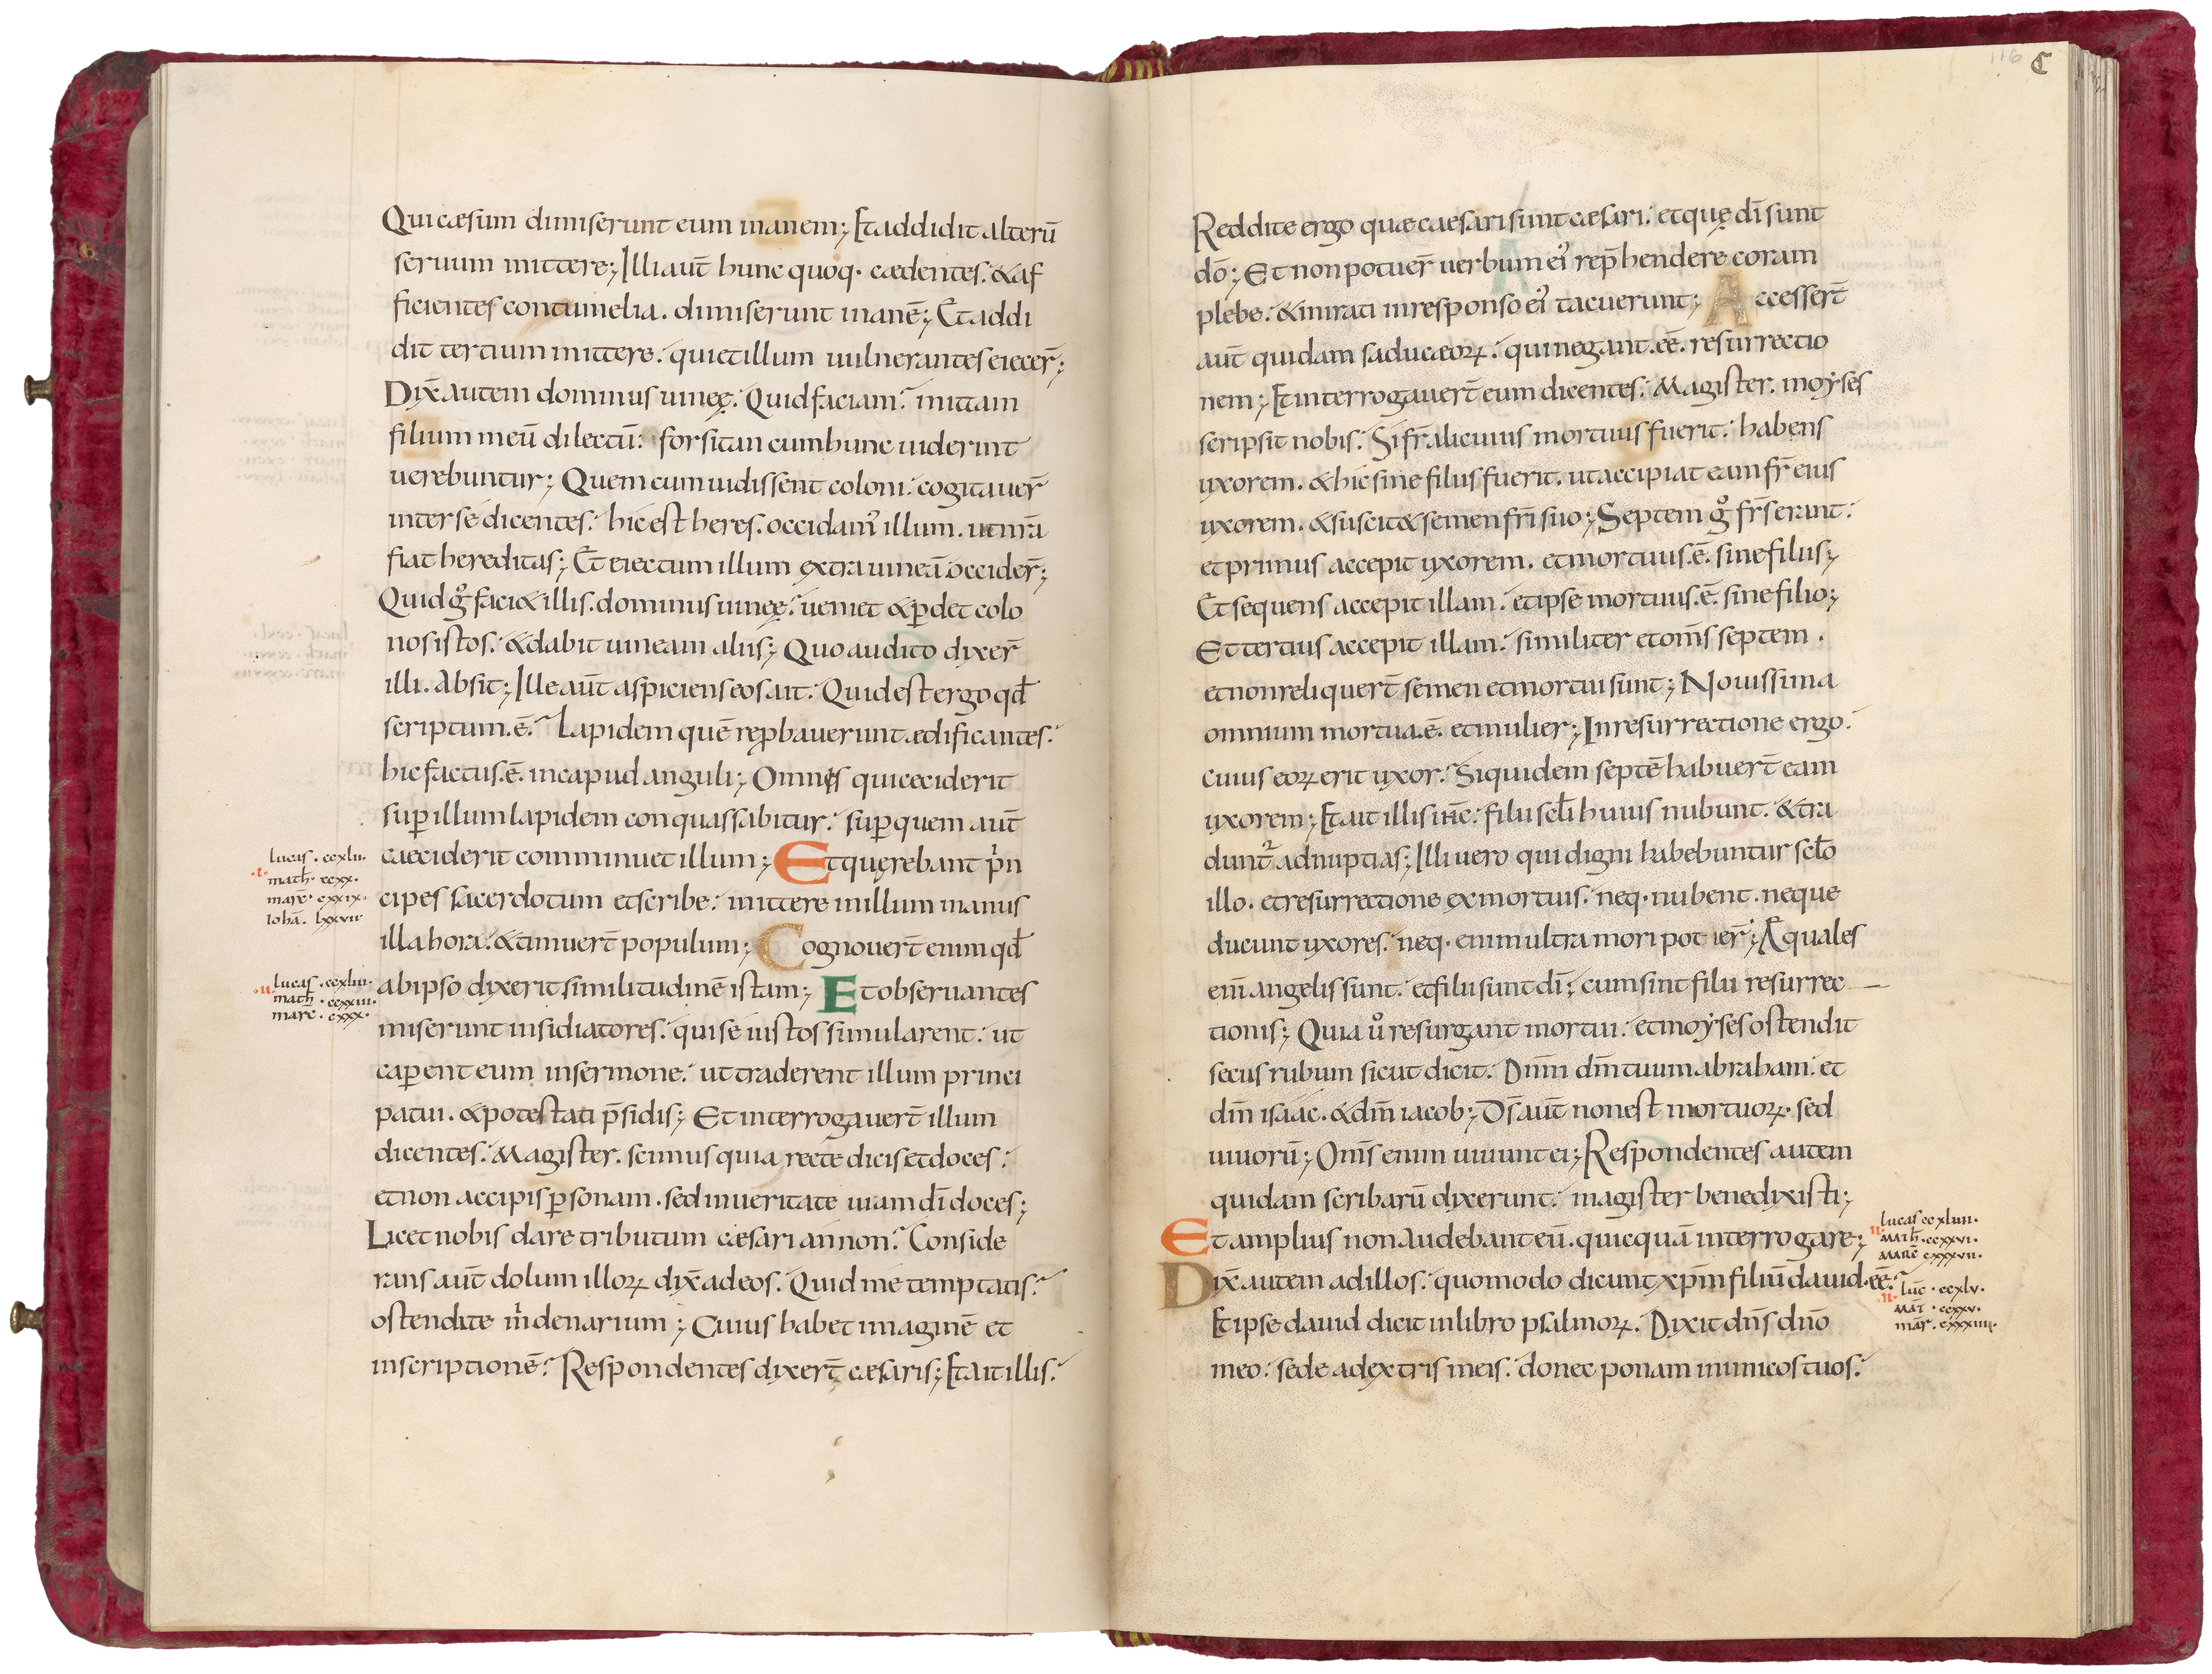 Qui cæsum dimiserunt eum inanem; Et addidit alterū
seruum mittere; Illi aut̄ hunc quoq· cædentes. & af
ficientes contumelia. dimiserunt inanē; Et addi
dit tertium mittere. qui et illum uulnerantes eiecer̄;
Dix̄ autem dominus uineę. Quid faciam? mittam
filium meū dilectū: forsitan cum hunc uiderint
uerebuntur; Quem cum uidissent coloni. cogitauer̄
inter se dicentes. hic est heres. occidam᾽ illum. ut nr̄a
fiat hereditas; Et eiectum illum extra uineā occider̄;
Quid gͦ faci& illis. dominus uineę? ueniet & ꝑdet colo
nos istos. & dabit uineam aliis; Quo audito dixer̄
illi. Absit; Ille aut̄ aspiciens eos ait. Quid est ergo qđ
scriptum .ē. Lapidem quē reꝓbauerunt ædificantes.
hic factus .ē. in capud anguli; Omnis qui ceciderit
suꝑ illum lapidem conquassabitur. suꝑ quem aut̄
caeciderit comminuet illum; Et quęrebant pͥn
cipes sacerdotum et scribe. mittere in illum manus
illa hora. & timuert̄ populum; Cognouert̄ enim qđ
ab ipso dixerit similitudinē istam; Et obseruantes
miserunt insidiatores. qui se iustos simularent. ut
caperent eum in sermone. ut traderent illum princi
patui. & potestati p̄sidis; Et interrogauert̄ illum
dicentes. Magister. scimus quia recte dicis et doces.
et non accipis ꝑsonam. sed in ueritate uiam dī doces;
Licet nobis dare tributum cæsari an non? Conside
rans aut̄ dolum illoꝝ dix̄ ad eos. Quid me temptatis?
ostendite mͥ denarium; Cuius habet imaginē et
inscriptionē? Respondentes dixert̄ cæsaris; Et ait illis.
lucas. ccxlii.
.i. math̄. ccxx.
marc̄. cxxix.
Iohā. lxxvii
.ii. lucas. ccxliii.
math̄. ccxxiii.
marc̄. cxxx.
116 C
Reddite ergo quæ caesari sunt cæsari. et quę dī sunt
dō; Et non potuer̄ uerbum ei᾽ rep̄hendere coram
plebe. & mirati in responso ei᾽ tacuerunt; Accessert̄
aut̄ quidam saducæoꝝ. qui negant .ēē. resurrectio
nem; Et interrogauert̄ eum dicentes. Magister. moẏses
scripsit nobis. Si fr̄ alicuius mortuus fuerit. habens
uxorem. & hic sine filiis fuerit. ut accipiat eam fr̄ eius
uxorem. & suscit& semen fr̄i suo; Septem gͦ fr̄s erant.
et primus accepit uxorem. et mortuus .ē. sine filiis;
Et sequens accepit illam. et ipse mortuus .ē. sine filio;
Et tertius accepit illam. similiter et om̄s septem.
et non reliquert̄ semen et mortui sunt; Nouissima
omnium mortua .ē. et mulier; In resurrectione ergo.
cuius eoꝝ erit uxor. Siquidem septē habuert̄ eam
uxorem; Et ait illis ih̄c. filii sc̄li huius nubunt. & tra
dunt᷑ ad nuptias; Illi uero qui digni habebuntur sc̄lo
illo. et resurrectione ex mortuis. neq· nubent. neque
ducunt uxores. neq· enim ultra mori poterī; Æquales
em̄ angelis sunt. et filii sunt dī; cum sint filii resurrec
tionis; Quia uͦ resurgant mortui. et moẏses ostendit
secus rubum sicut dicit. Dn̄m dm̄ tuum abraham. et
dm̄ isaac. & dm̄ iacob; Ds̄ aut̄ non est mortuoꝝ. sed
uiuorū; Om̄s enim uiuunt ei; Respondentes autem
quidam scribarū dixerunt. magister bene dixisti;
Et amplius non audebant eū. quicquā interrogare;
Dix̄ autem ad illos. quomodo dicunt xp̄m filiū dauid .ēē.
Et ipse dauid dicit in libro psalmoꝝ. Dixit dn̄s dn̄o
meo. sede a dextris meis. donec ponam inimicos tuos.
.ii. lucas ccxliiii.
math̄. ccxxvi.
marc̄ cxxxvii.
.ii. luc̄. ccxlv.
mat̄. ccxxv.
mar̄. cxxxiiii.